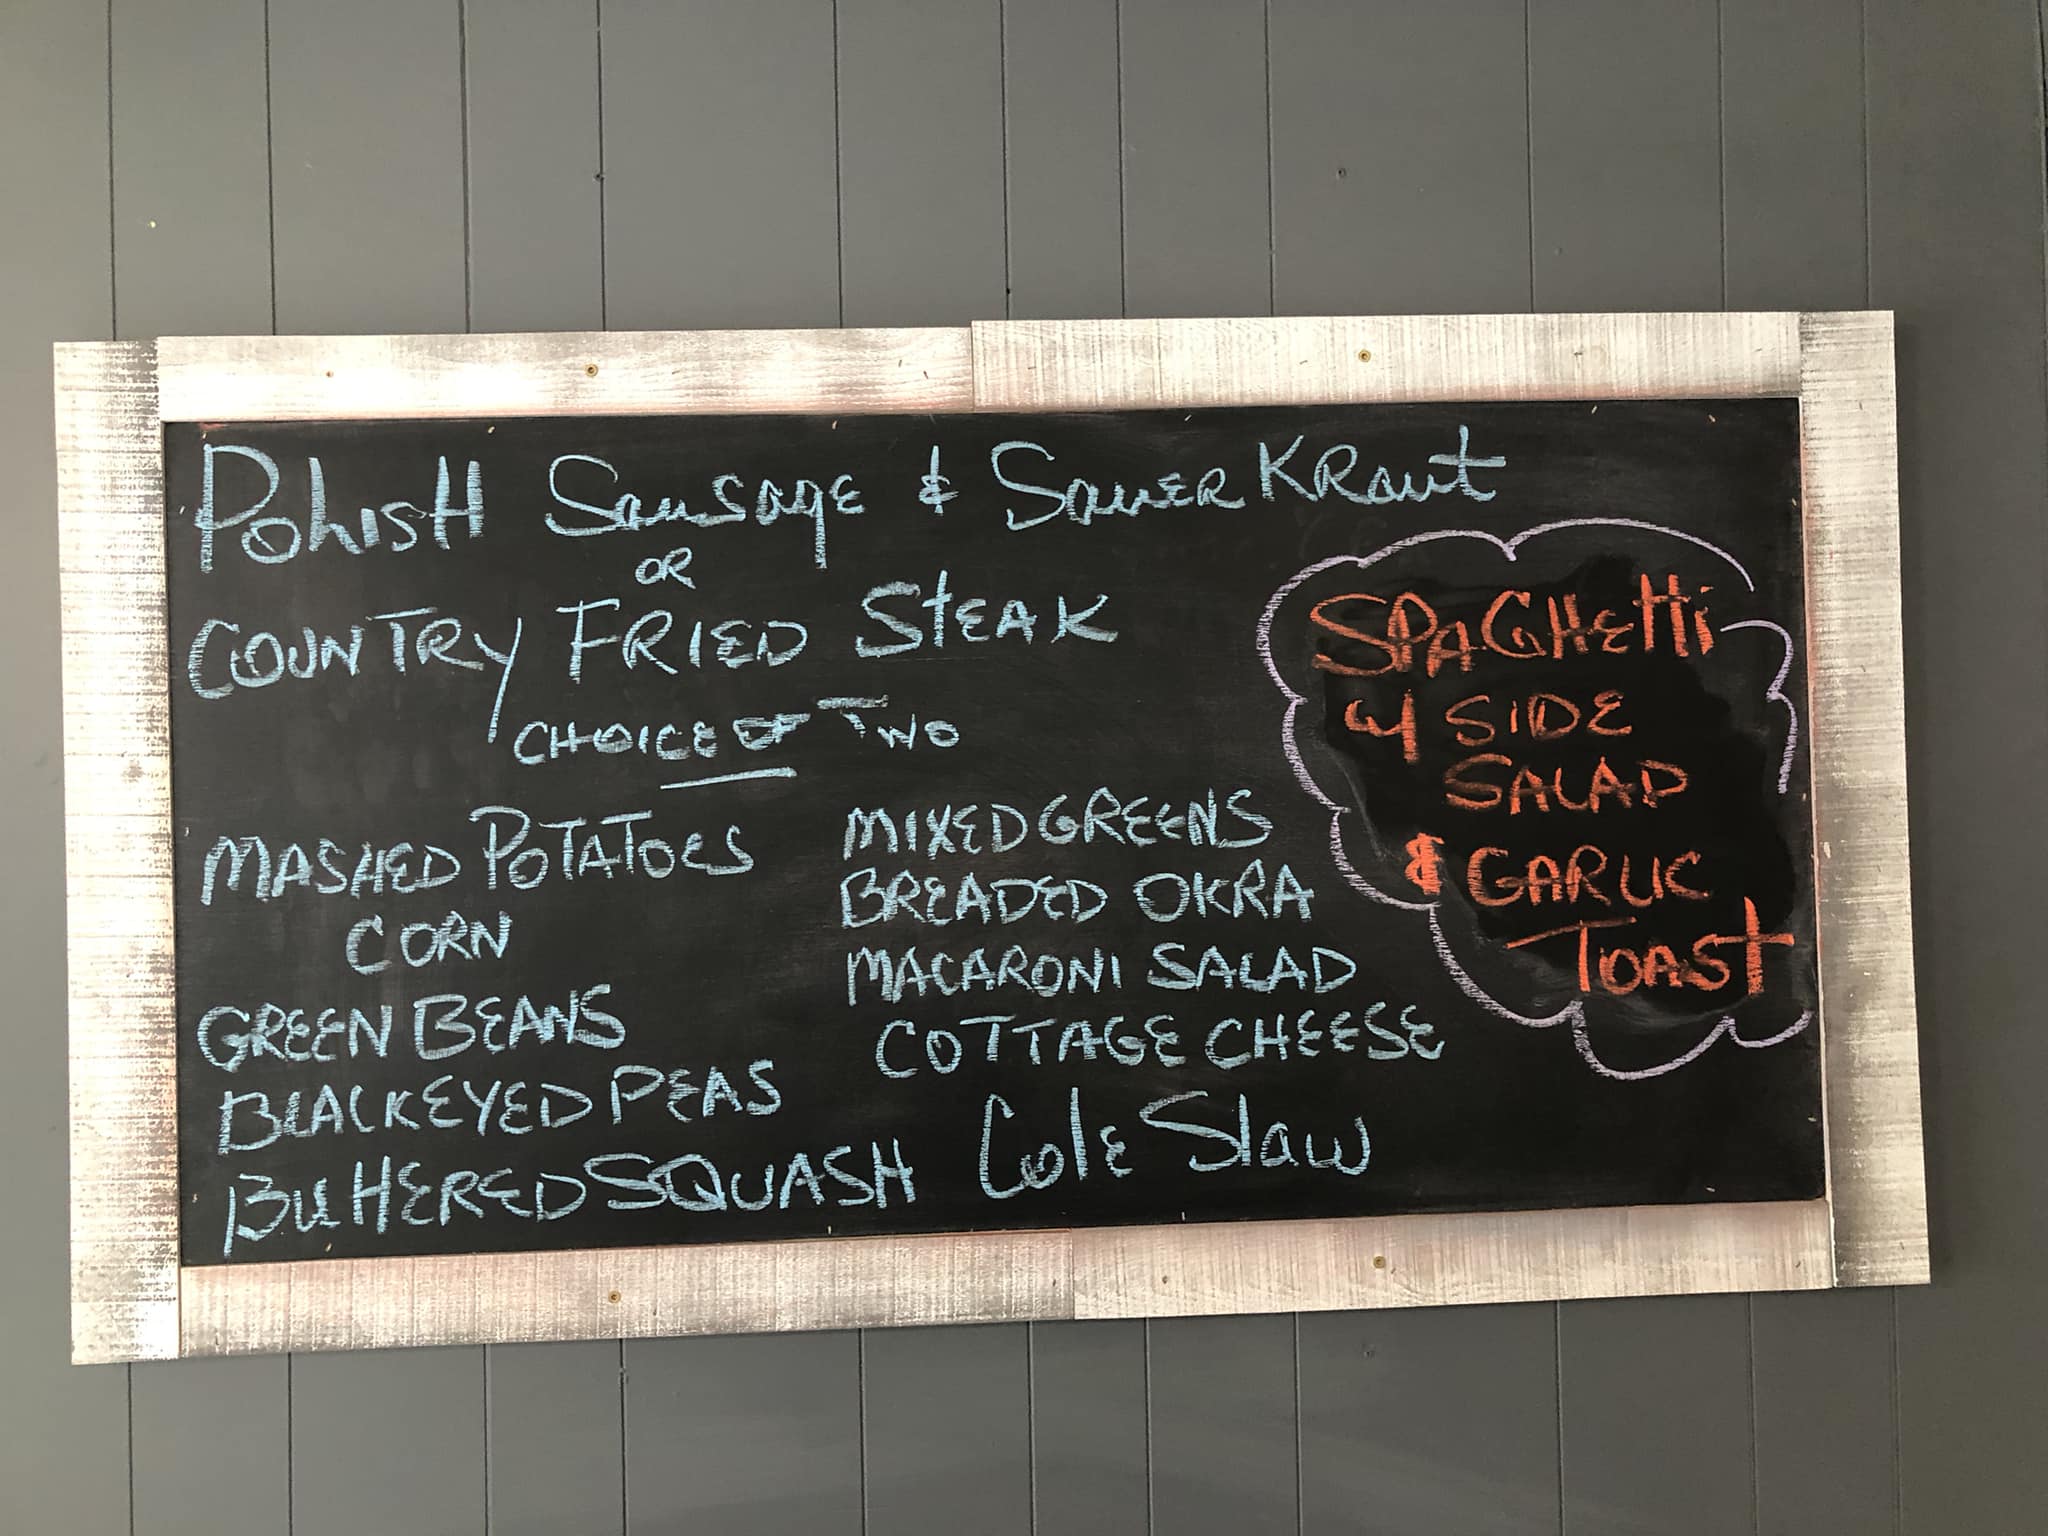 POLISH SAUSAGE & SAUERKRAUT
OR
COUNTRY FRIED STEAK
CHOICE OF TWO
MASHED POTATOES
CORN
GREEN BEANS
BLACKEYED PEAS
BUTTERED SQUASH
MIXED GREENS
BREADED OKRA
MACARONI SALAD
COTTAGE CHEESE
Cole Slaw
SPAGHETTI
w/ SIDE
SALAD
& GARLIC
TOAST